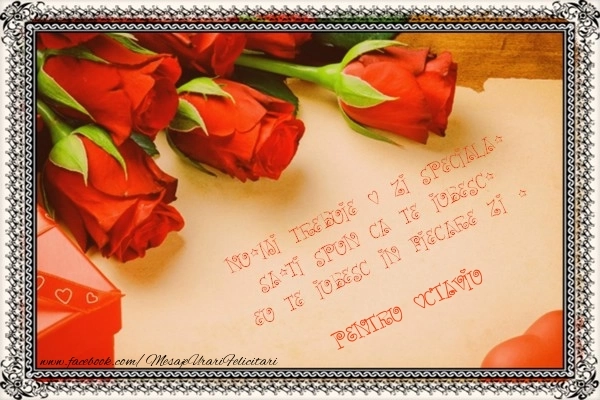 NU-MI TREBUIE O ZI SPECIALA
SA-TI SPUN CA TE IUBESC
EU TE IUBESC IN FIECARE ZI
PENTRU OCTAVIU
www.facebook.com/MesajeUrariFelicitari